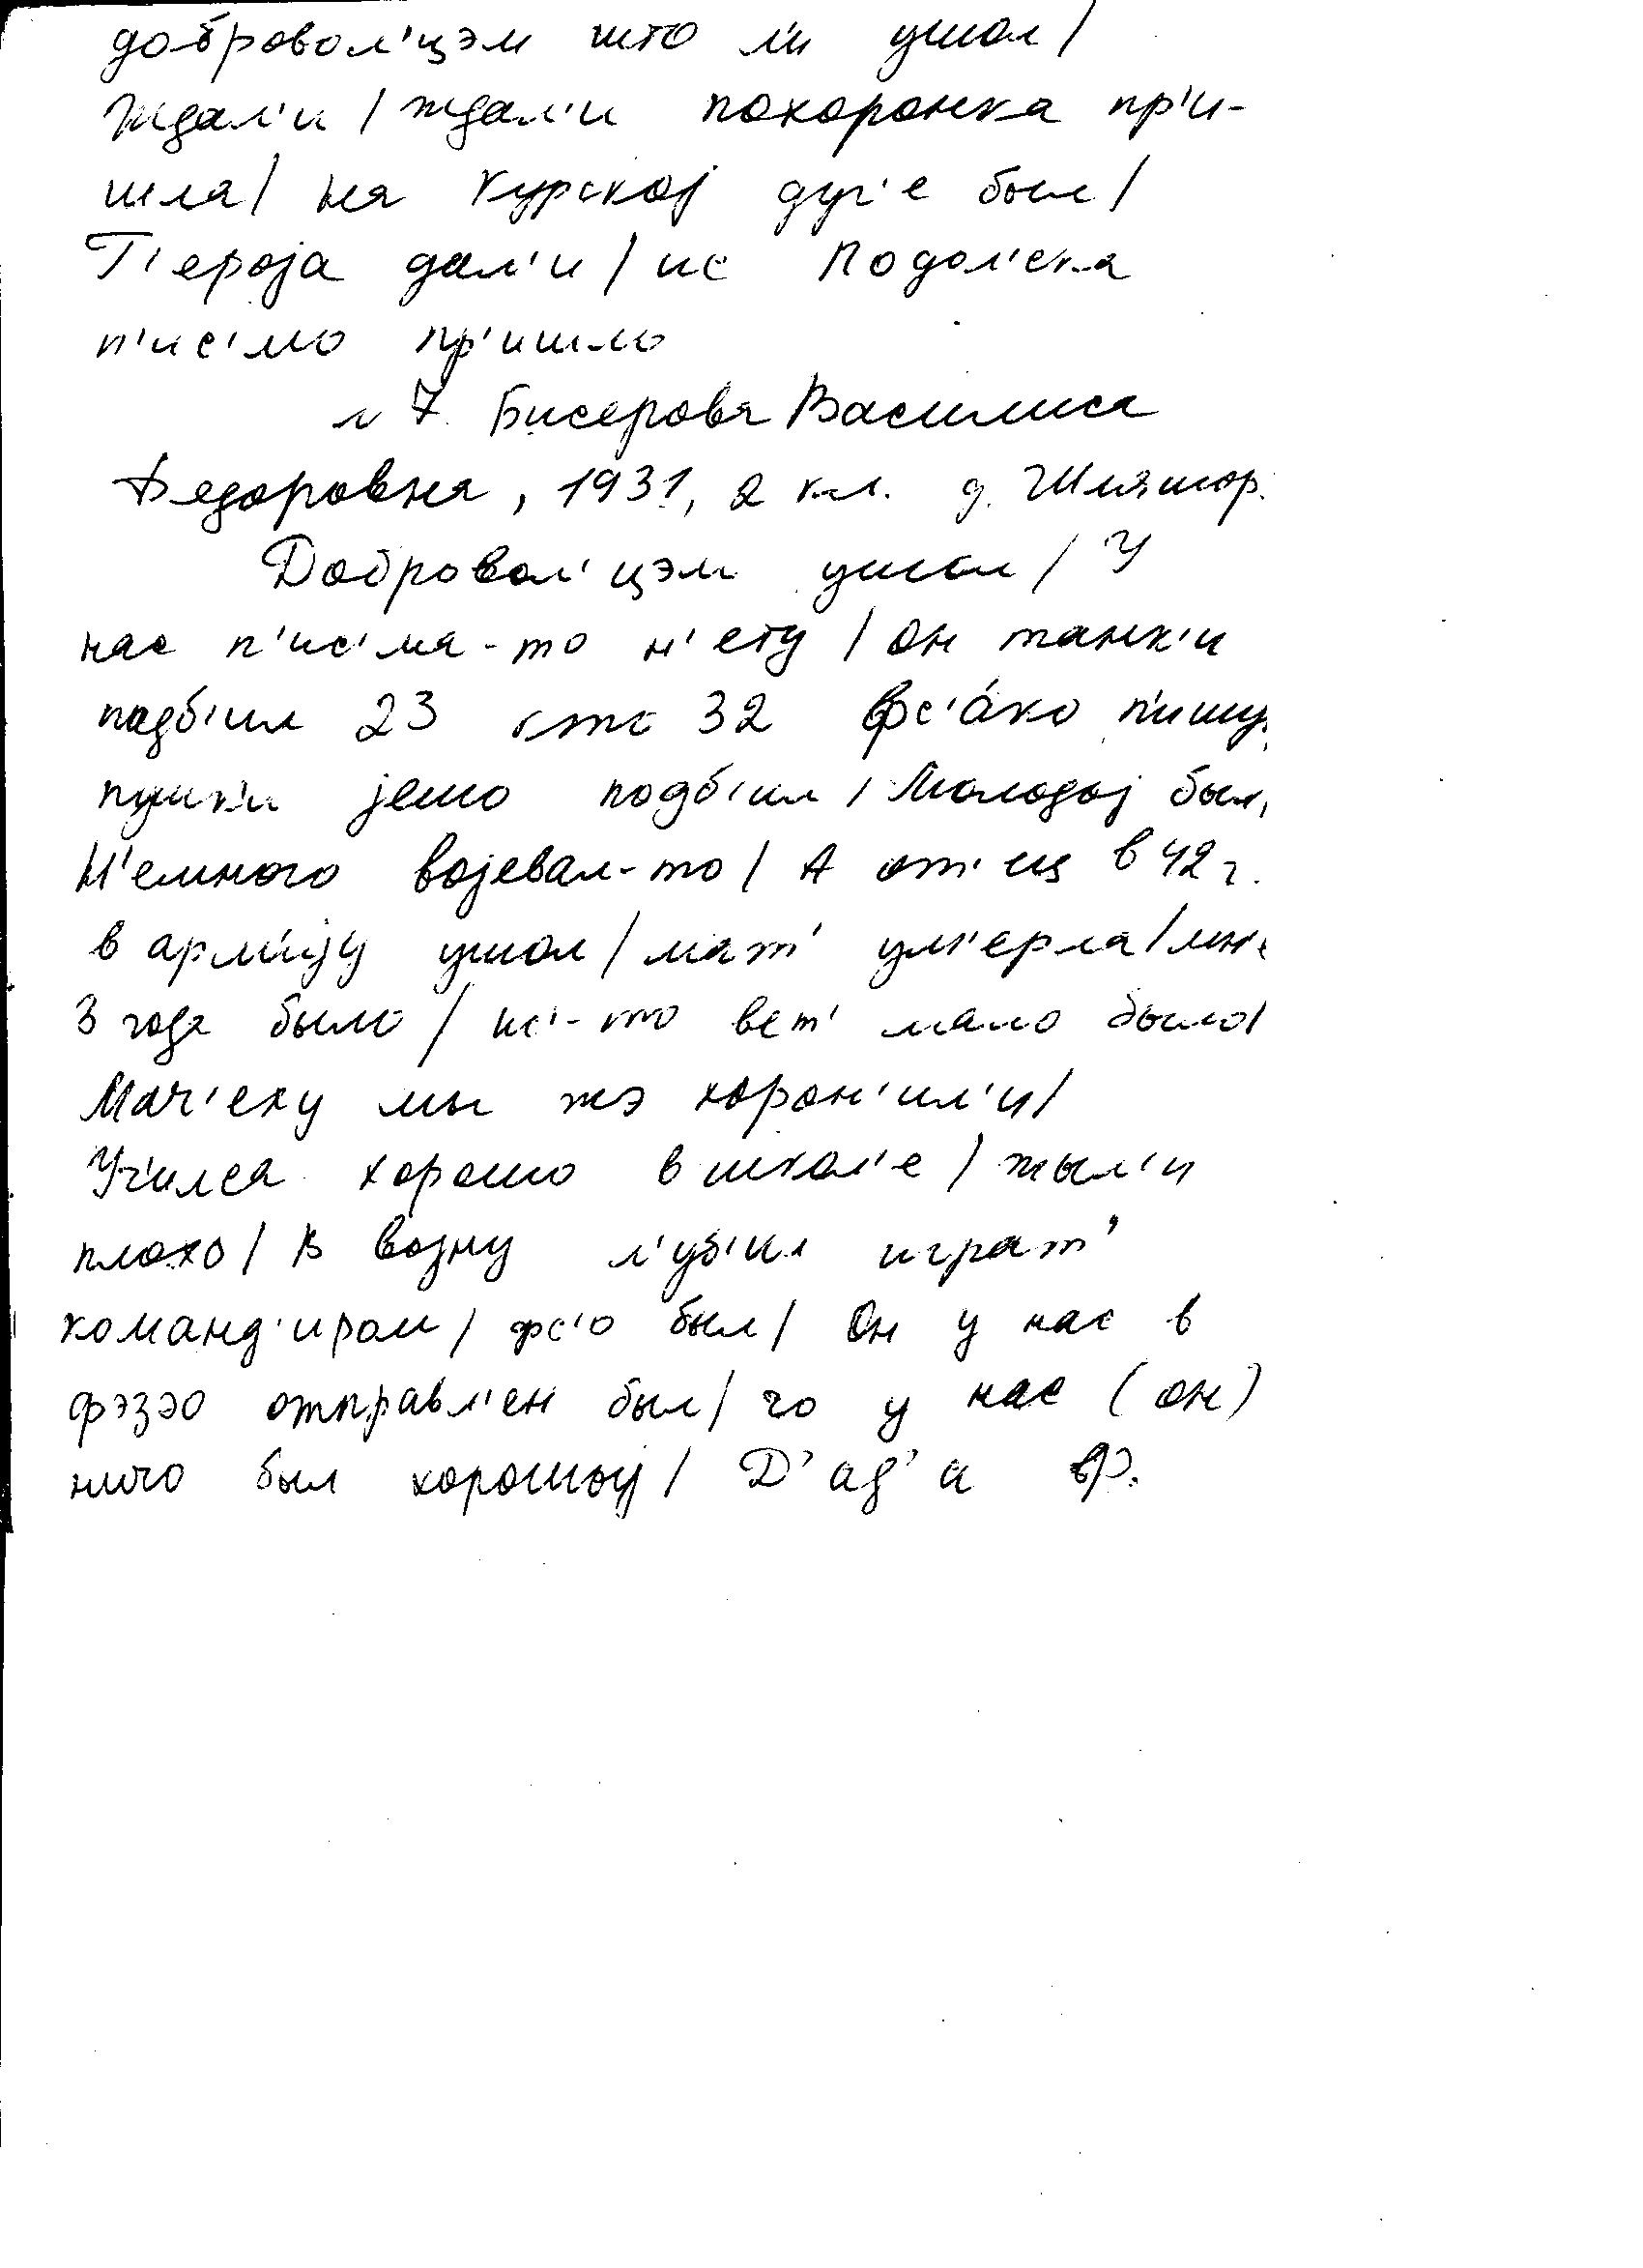 доброволʼцэм што лʼи ушол/
Ждалʼи / ждалʼи похоронка прʼи-
шла/ на Курској дугʼе был/
Гʼероја далʼи / ис Подолʼска
пʼисʼмо прʼишло
7. Бисерова Василиса
Федоровна, 1931, 2 кл. д.
Доброволʼцэм ушол / У
нас пʼисʼма-то нʼету / он танкʼи
подбʼил 23 32 фсʼа́ко пʼишу
пушкʼи јешо подбʼил / Молодој был,
Нʼемного војевал-то / А отʼец в 42 г.
в армʼију ушол / матʼ умʼерла / мнʼе
3 года было / ветʼ мало было/
Мачʼеху мы жэ хоронʼилʼи/
Учʼилса хорошо в школʼе / жылʼи
плохо / В војну лʼубʼил игратʼ
командʼиром / фсʼо был / Он у нас в
фэзэо отправлʼен был / чо у нас (он)
ничо был хорошыј / Дʼадʼа Ф.